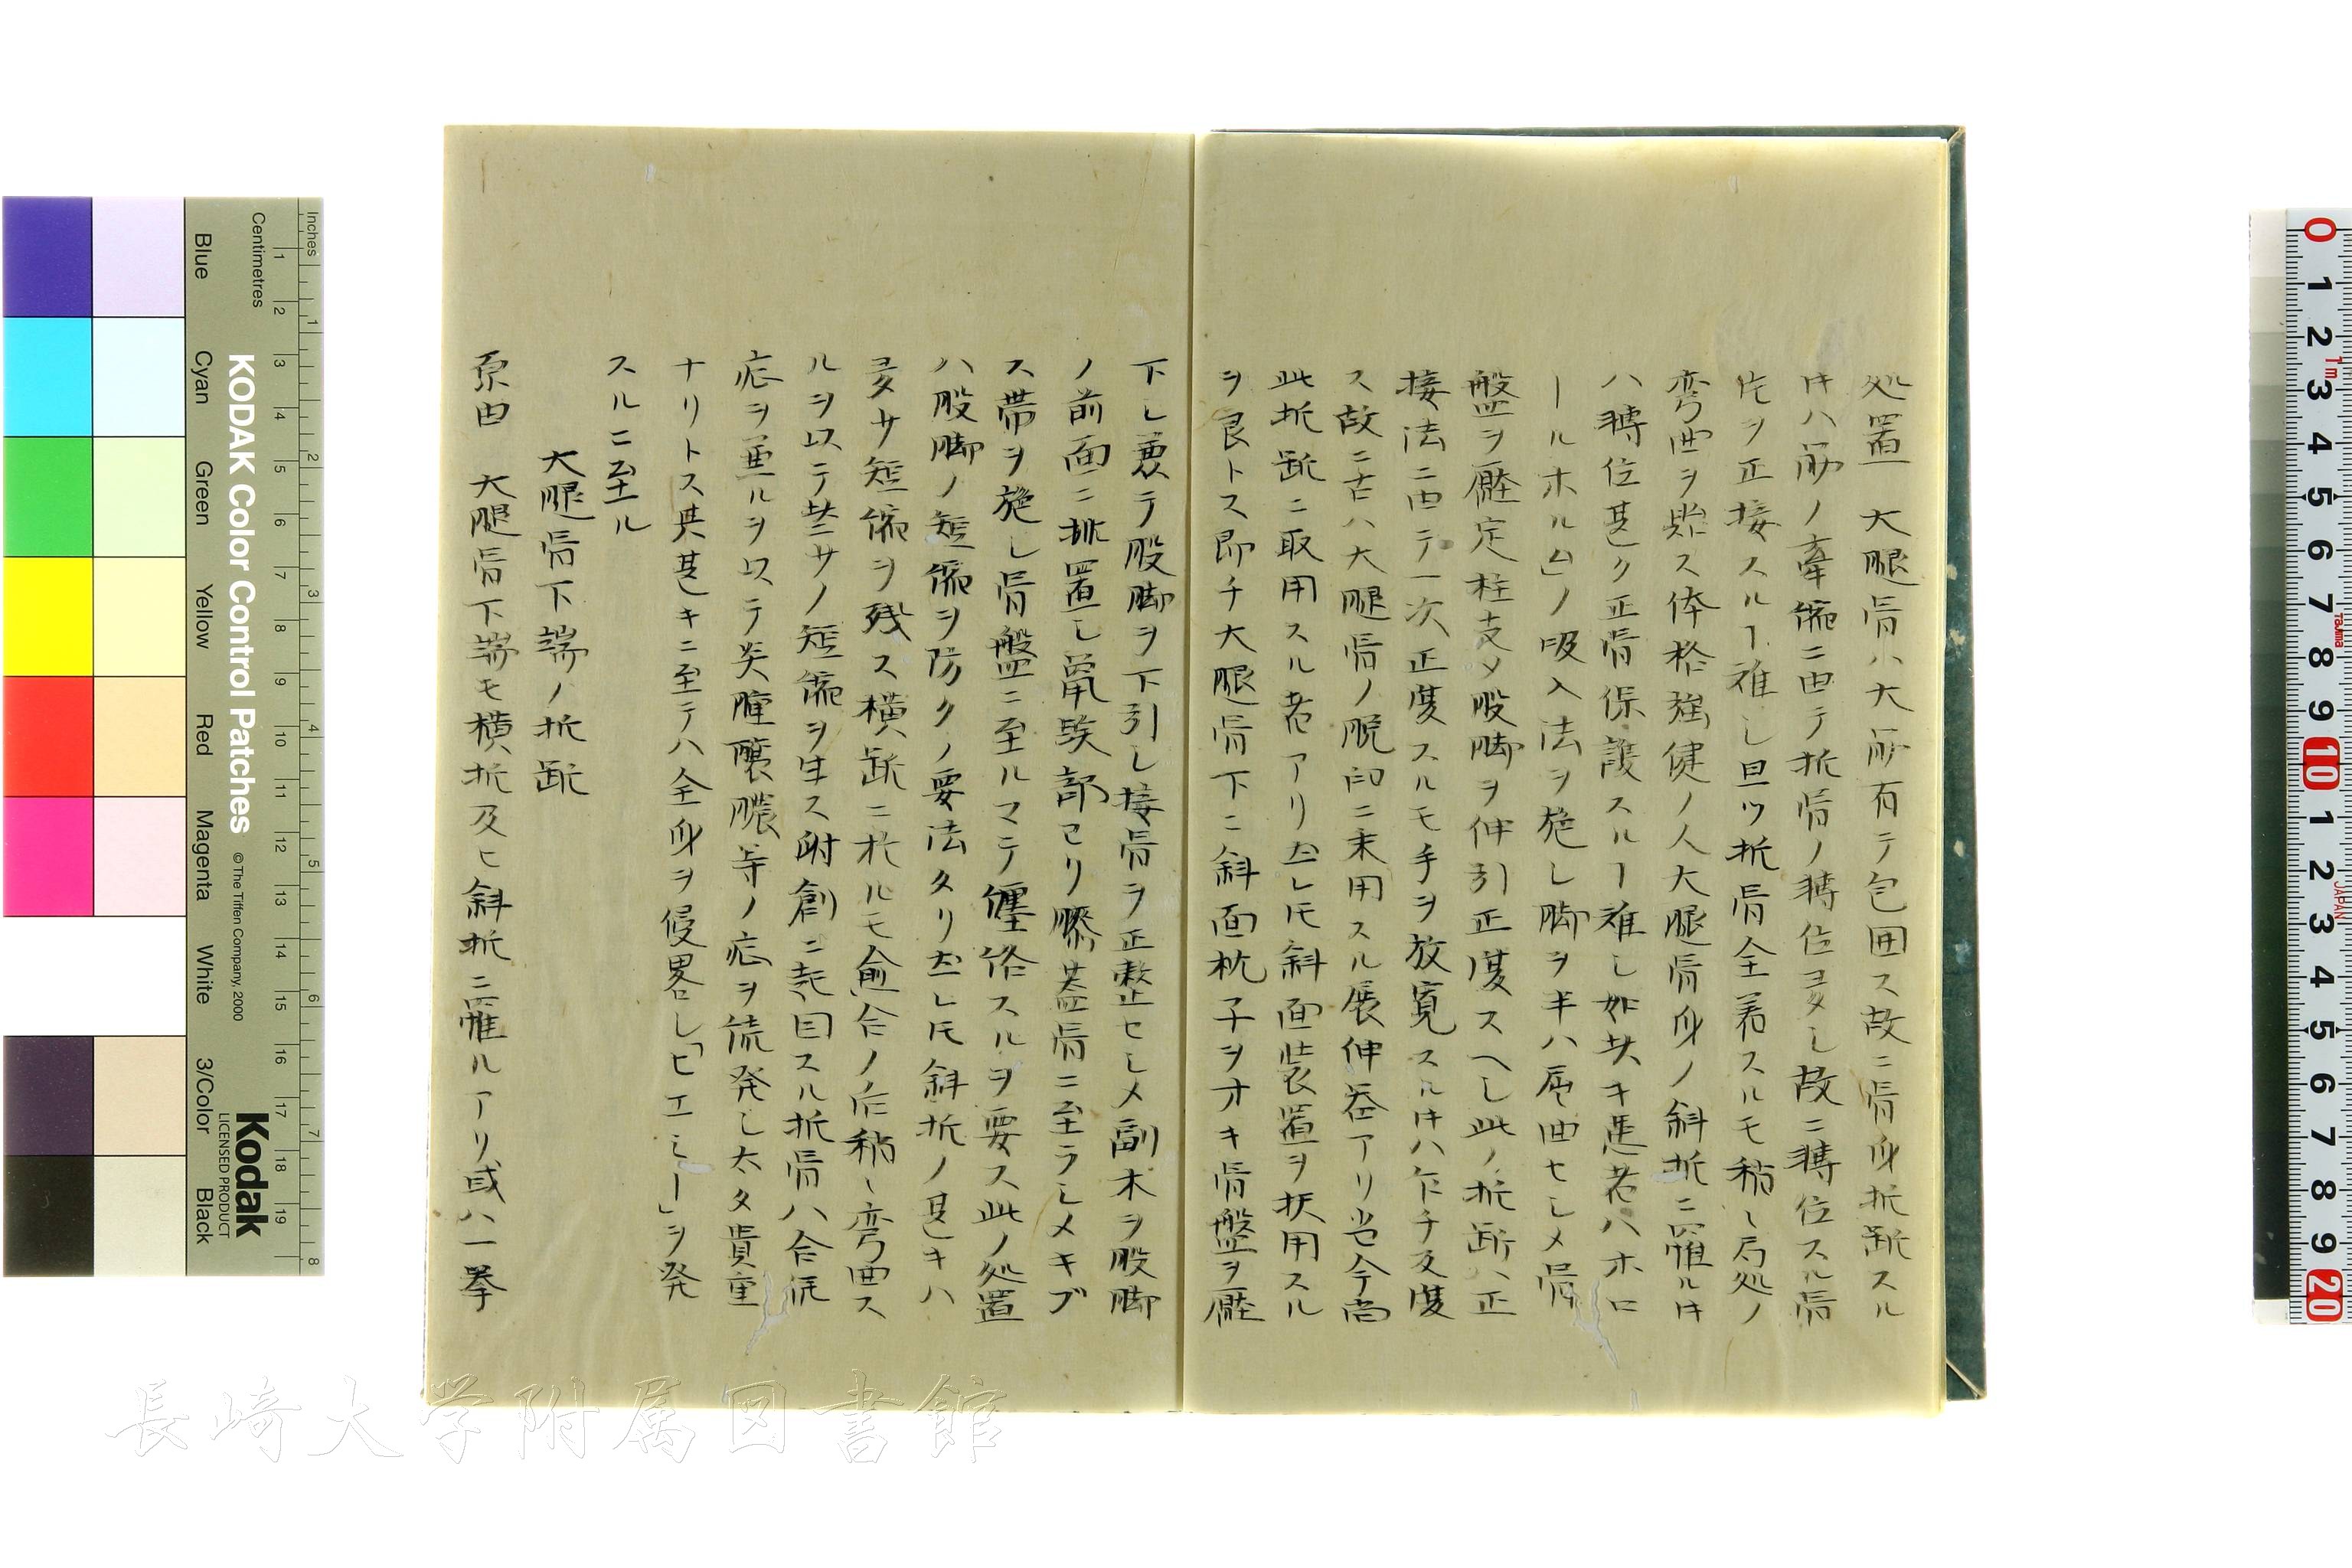 処置 大腿骨ハ大筋有テ包囲ス故ニ骨身折断スル
キハ筋ノ牽縮ニ由テ折骨ノ転位多シ故ニ転位スル骨
片ヲ正接スルヿ難シ且ツ折骨全着スルモ稍々局処ノ
弯曲ヲ貽ス体格強健ノ人大腿骨身ノ斜折ニ罹ルキ
ハ転位甚タ正骨保護スルヿ難シ如斯キ患者ハホロ
ールホルム」ノ吸入法ヲ施シ脚ヲ半ハ屈曲セシメ骨
盤ヲ圧定柱支メ股脚ヲ伸引正度スヘシ此ノ折断ハ正
接法ニ由テ一次正度スルモ手ヲ放寛スルキハ乍チ反度
ス故ニ古ハ大腿骨ノ脱臼ニ来用スル展伸器アリ当今尚
此折断ニ取用スル者アリ然レ𪜈斜面装置ヲ扶用スル
ヲ良トス即チ大腿骨下ニ斜面枕子ヲオキ骨盤ヲ圧
下シ兼テ股脚ヲ下引シ接骨ヲ正整セシメ副木ヲ股脚
ノ前面ニ排置シ鼠蹊部ヨリ膝蓋骨ニ至ラシメキブ
ス帯ヲ施シ骨盤ニ至ルマテ纏絡スルヲ要ス此ノ処置
ハ股脚ノ短縮ヲ防クノ要法タリ然レ𪜈斜折ノ甚キハ
多少短縮ヲ残ス横断ニ於ルモ愈合ノ后稍々弯曲ス
ルヲ以テ些少ノ短縮ヲ生ス附創ニ起因スル折骨ハ合併
症ヲ兼ルヲ以テ炎腫醸膿等ノ症ヲ続発シ太タ貴重
ナリトス其甚キニ至テハ全身ヲ侵畧シ「ヒエミー」ヲ発
スルニ至ル
大腿骨下端ノ折断
原由 大腿骨下端モ横折及ヒ斜折ニ罹ルアリ或ハ一挙
KODAK Color Control Patches
© The Tiffen Company, 2000
Kodak
LICENSED PRODUCT
Inches
Centimetres
Blue Cyan Green Yellow Red Magenta White 3/Color Black
長崎大学附属図書館